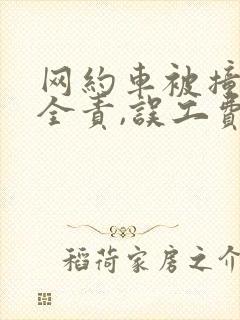 网約車被撞
全責,誤工費
稻荷家居之介